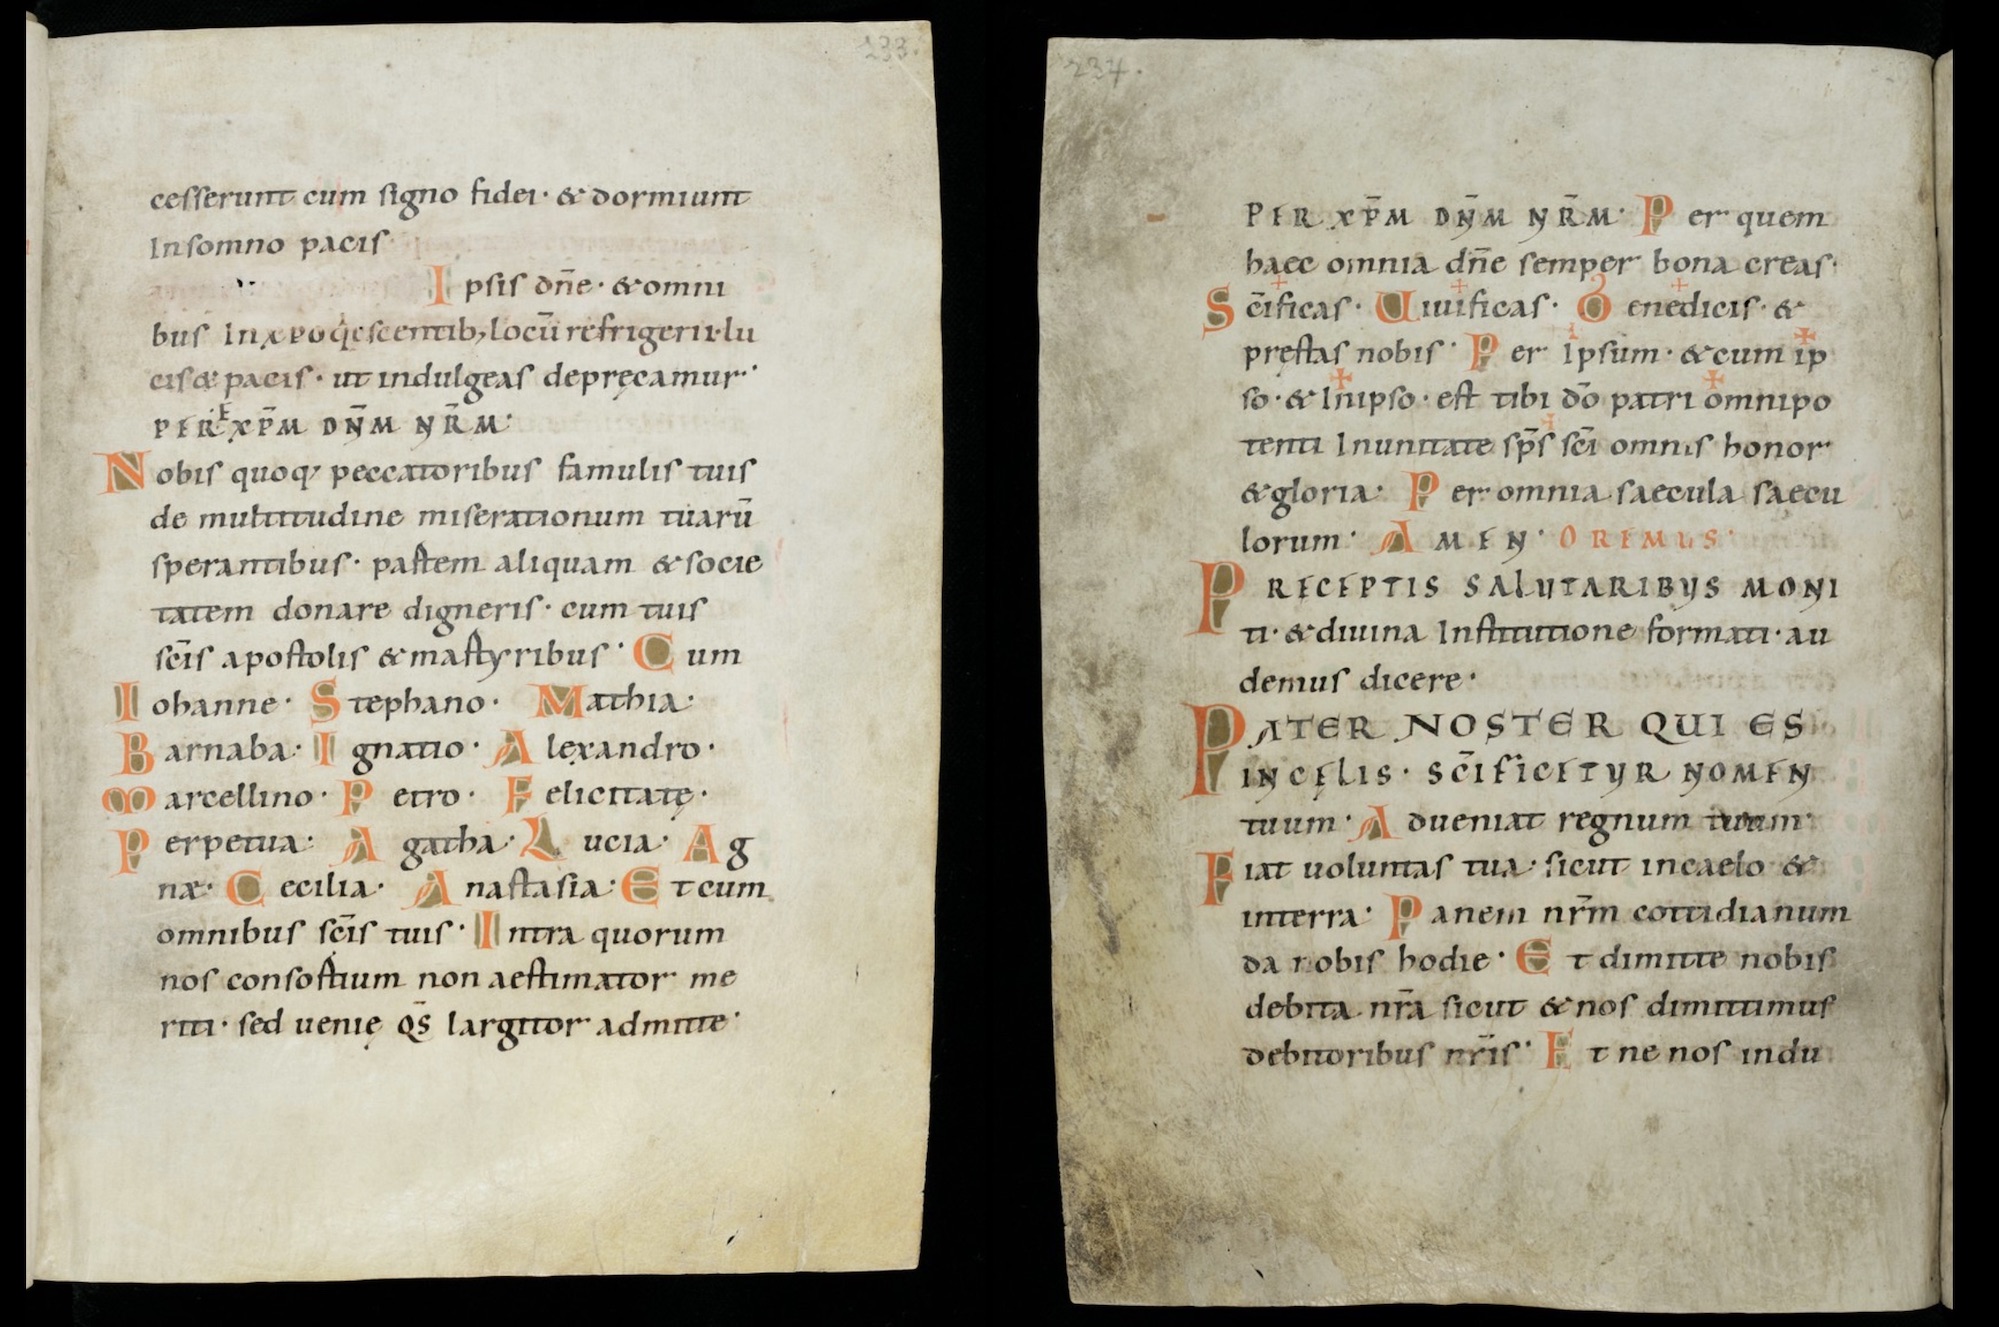 233.
cesserunt cum signo fidei · & dormiunt
In somno pacis ·
Ipsis dn̄e · & omni
bus In xpo q̇escentib; locū refrigerii · lu
cis & pacis · ut indulgeas depręcamur ·
PER EXP̄M DN̄M NR̄M ·
Nobis quoq; peccatoribus famulis tuis
de multitudine miserationum tuarū
sperantibus · partem aliquam & socie
tatem donare digneris · cum tuis
sc̄is apostolis & martyribus · Cum
Iohanne · Stephano · Mathia ·
Barnaba · Ignatio · Alexandro ·
Marcellino · Petro · Felicitatę ·
Perpetua · Agatha · Lucia · Ag
næ · Cecilia · Anastasia · Et cum
omnibus sc̄is tuis · Intra quorum
nos consortium non aestimator me
riti · sed uenię QS̄ largitor admitte ·
234.
PER XP̄M DN̄M NR̄M · Per quem
haec omnia dn̄e semper bona creas ·
Sc̄ificas · Uiuificas · Benedicis · &
pręstas nobis · Per ipsum · & cum ip
so · & In ipso · est tibi dō patri omnipo
tenti In unitate sp̄s sc̄i omnis honor
& gloria · Per omnia saecula saecu
lorum · AMEN · OREMUS ·
PRECEPTIS SALUTARIBUS MONI
ti · & diuina Institutione formati · au
demus dicere ·
PATER NOSTER QUI ES
IN CĘLIS · SC̄IFICETUR NOMEN
tuum · Adueniat regnum tuum ·
Fiat uoluntas tua · sicut in caelo &
in terra · Panem nr̄m cottidianum
da nobis hodie · Et dimitte nobis
debita nr̄a sicut & nos dimittimus
debitoribus nr̄is · Et ne nos indu